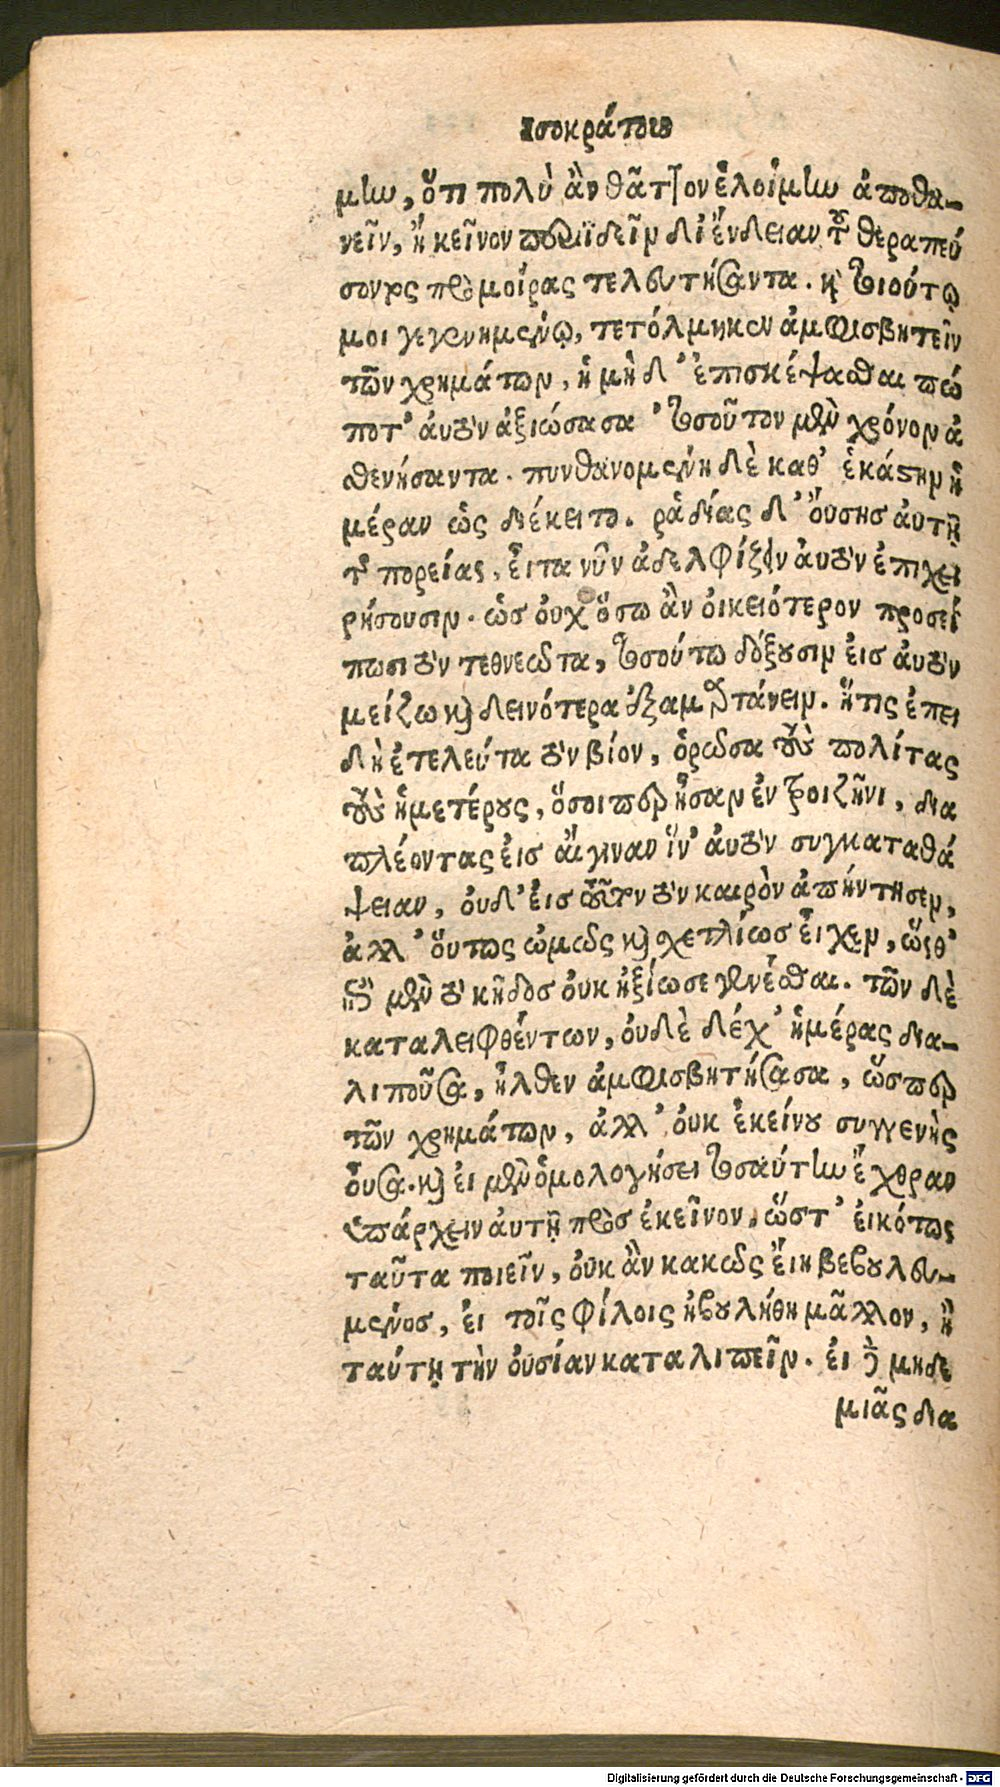 Ἰσοκράτους
μην, ὅτι πολὺ ἂν θᾶττον ἑλοίμην ἀποθα-
νεῖν, ἢ κεῖνον περιϊδεῖν δι' ἔνδειαν τοῦ θεραπεύ
σοντος πρὸ μοίρας τελευτήσαντα. καὶ τοιούτῳ
μοι γεγενημένῳ, τετόλμηκεν ἀμφισβητεῖν
τῶν χρημάτων, ἡ μὴ δ' ἐπισκέψασθαι πώ
ποτ' ἀυτὸν ἀξιώσασα τοσοῦτον μὲν χρόνον ἀ
σθενήσαντα. πυνθανομένη δὲ καθ' ἑκάστην ἡ
μέραν ὡς διέκειτο. ῥᾳδίας δ' ὄυσης ἀυτῇ
τῆς πορείας, ἔιτα νῦν ἀδελφίζειν ἀυτὸν ἐπιχει
ρήσουσιν. ὡς ὀυχ ὅσω ἂν ὀικειότερον προσεί
πωσι τὸν τεθνεῶτα, τοσούτω δόξουσιν ἐις ἀυτὸν
μείζω καὶ δεινότερα ἐξαμαρτάνειν. ἥτις ἐπει
δὴ ἐτελεύτα τὸν βίον, ὁρῶσα τοὺς πολίτας
τοὺς ἡμετέρους, ὅσοιπερ ἦσαν ἐν τροιζῆνι, δια
πλέοντας ἐις ἄιγιναν ἵν' ἀυτὸν συγκαταθά
ψειαν, ὀυδ' ἐις τοῦτον τὸν καιρὸν ἀπήντησεν,
ἀλλ' ὅυτως ὠμῶς καὶ σχετλίως ἔιχεν, ὥσθ'
ἐπὶ μὲν τὸ κῆδος ὀυκ ἠξίωσε γενέσθαι. τῶν δὲ
καταλειφθέντων, ὀυδὲ δέχ' ἡμέρας δια-
λιποῦσα, ἦλθεν ἀμφισβητήσασα, ὥσπερ
τῶν χρημάτων, ἀλλ' ὀυκ ἐκείνου συγγενὴς
ὄυσα. καὶ ἐι μὲν ὁμολογήσει τοσαύτην ἔχθραν
ὑπάρχειν ἀυτῇ πρὸς ἐκεῖνον, ὥστ' ἐικότως
ταῦτα ποιεῖν, ὀυκ ἂν κακῶς ἔιη βεβουλευ-
μένος, ἐι τοῖς φίλοις ἠβουλήθη μᾶλλον, ἢ
ταύτῃ τὴν ὀυσίαν καταλιπεῖν. ἐι δὲ μηδε
μιᾶς δια
Digitalisierung gefördert durch die Deutsche Forschungsgemeinschaft - DFG